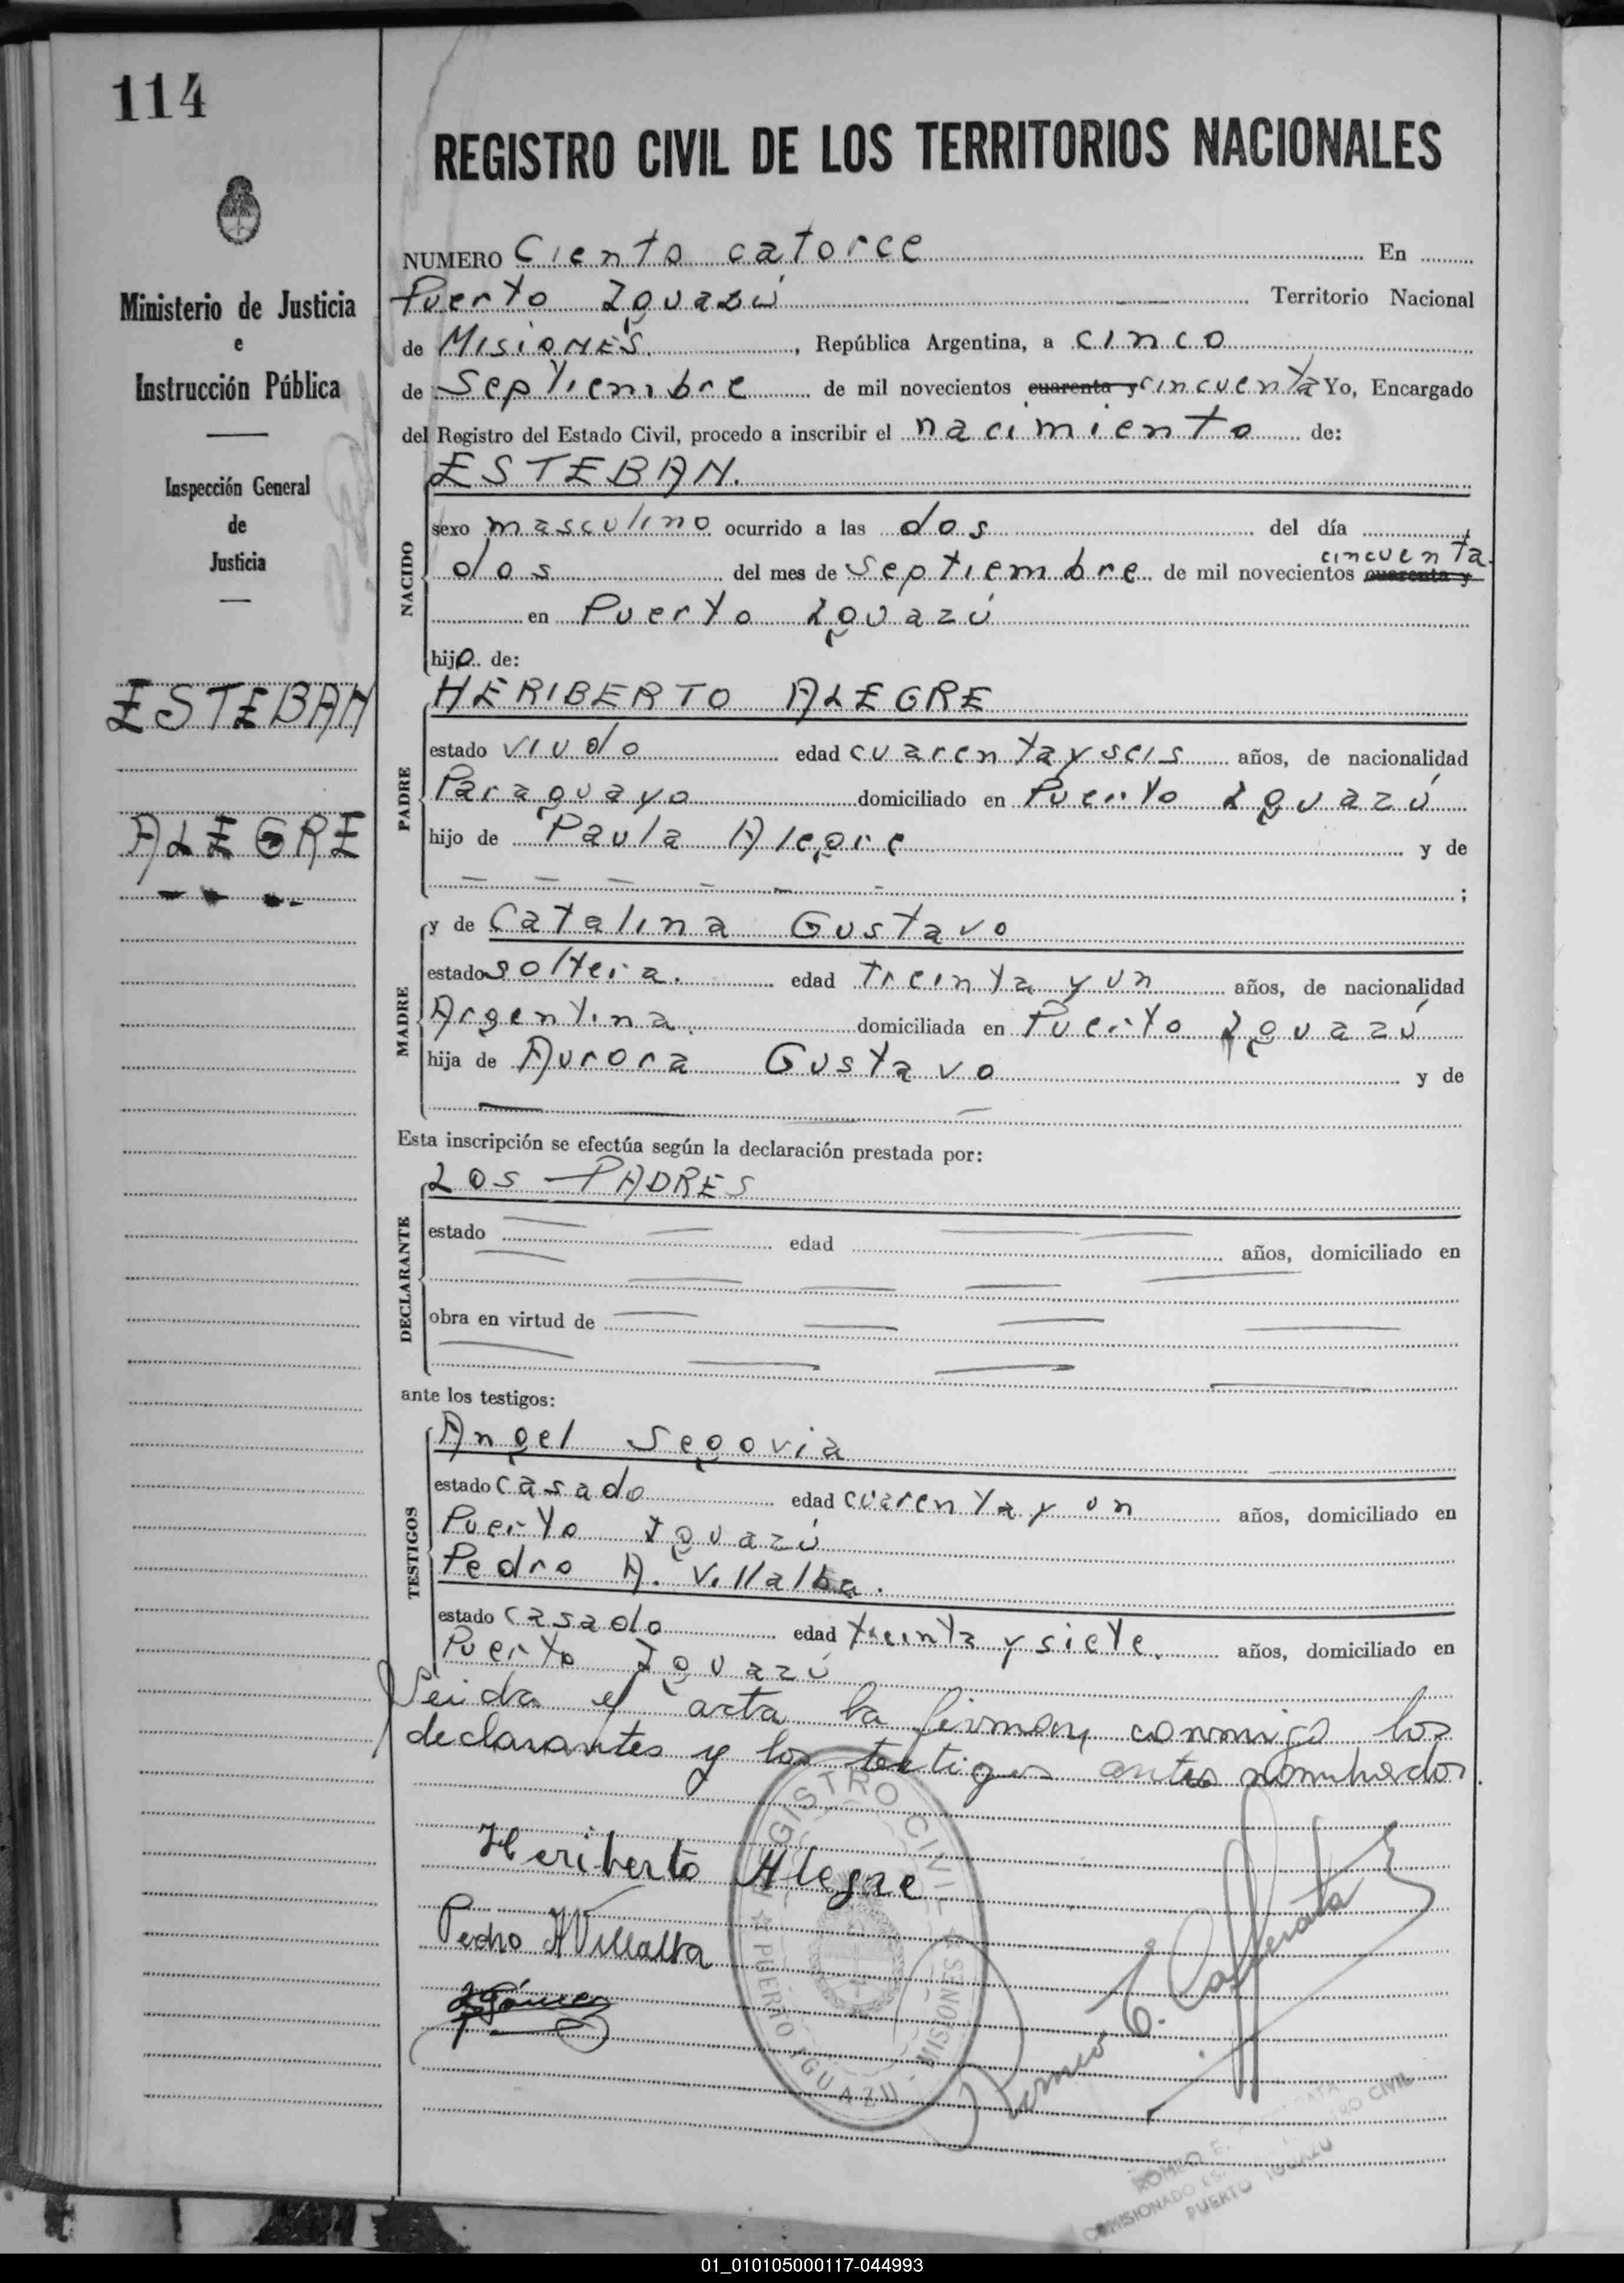 114
Ministerio de Justicia
e
Instrucción Pública
Inspección General
de
Justicia
ESTEBAN
ALEGRE
REGISTRO CIVIL DE LOS TERRITORIOS NACIONALES
NUMERO Ciento catorce En
Puerto Iguazú Territorio Nacional
de MISIONES. , República Argentina, a cinco
de Septiembre de mil novecientos cuarenta y cincuenta Yo, Encargado
del Registro del Estado Civil, procedo a inscribir el nacimiento de:
ESTEBAN.
NACIDO
sexo masculino ocurrido a las dos del día
cincuenta.
dos del mes de septiembre de mil novecientos cuarenta y
en Puerto Iguazú
hijo de:
HERIBERTO ALEGRE
PADRE
estado viudo edad cuarenta y seis años, de nacionalidad
Paraguayo domiciliado en Puerto Iguazú
hijo de Paula Alegre y de
;
y de Catalina Gustavo
MADRE
estado soltera. edad treinta y un años, de nacionalidad
Argentina. domiciliada en Puerto Iguazú
hija de Aurora Gustavo y de
Esta inscripción se efectúa según la declaración prestada por:
LOS PADRES
DECLARANTE
estado edad años, domiciliado en
obra en virtud de
ante los testigos:
Angel Segovia
TESTIGOS
estado casado edad cuarenta y un años, domiciliado en
Puerto Iguazú
Pedro A. Villalba.
estado casado edad treinta y siete. años, domiciliado en
Puerto Iguazú
Leida el acta la firman conmigo los
declarantes y los testigos antes nombrados.
REGISTRO CIVIL
PUERTO IGUAZU - MISIONES
Heriberto Alegre
Pedro A Villalba
Romeo E.
ROMEO E.
COMISIONADO REGISTRO CIVIL
PUERTO IGUAZU
01_010105000117-044993